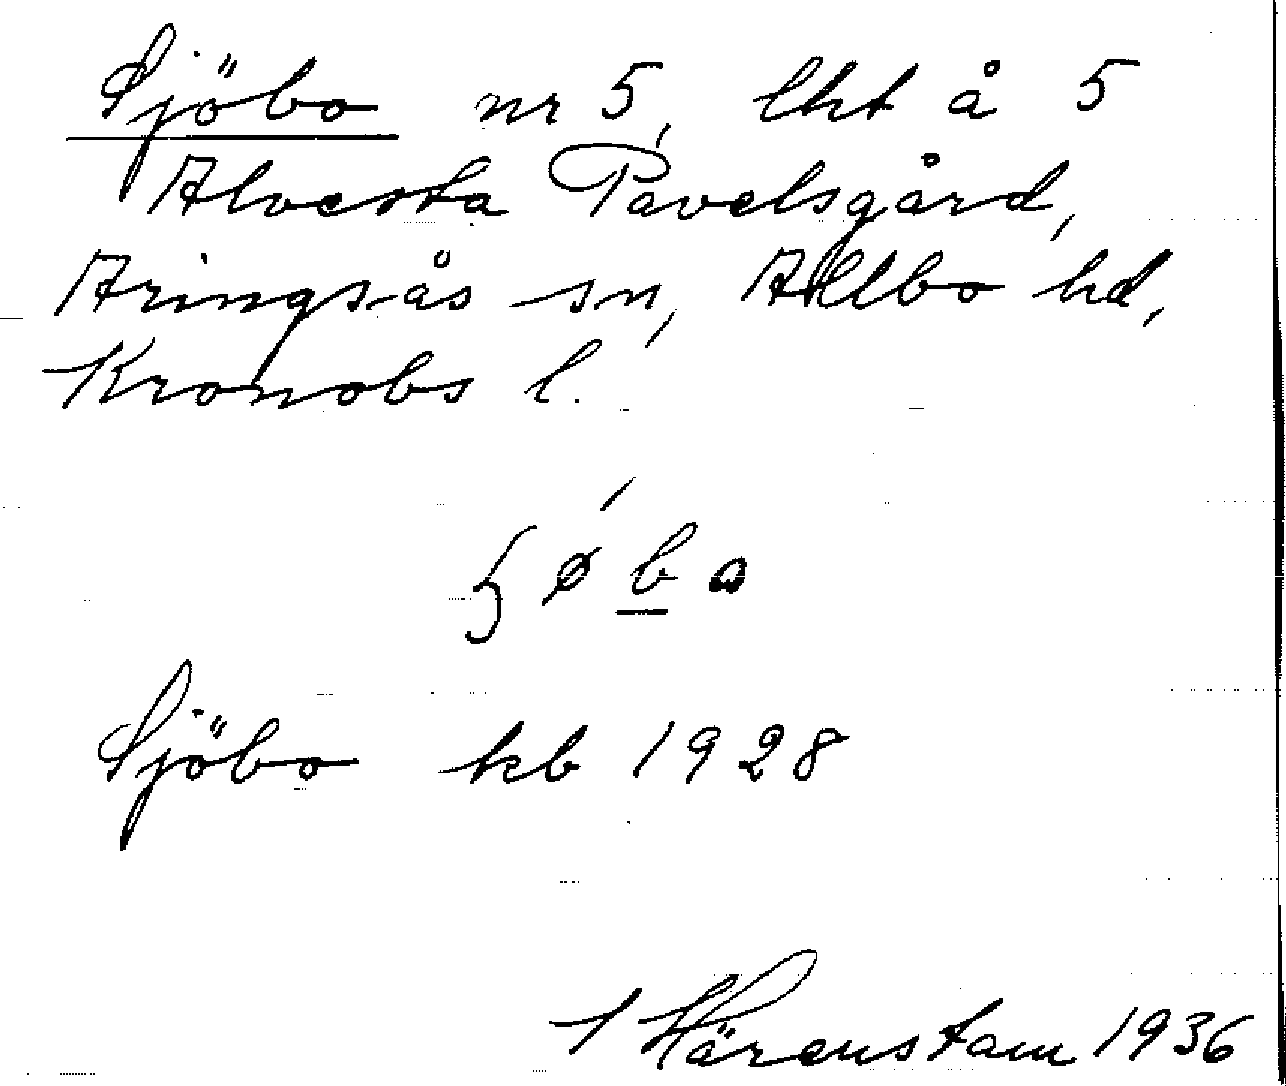 Sjöbo nr 5, lht å 5
Alvesta Pavelsgård,
Aringsås sn, Allbo hd,
Kronobs l.
ʃǿb̲a
Sjöbo kb 1928
Härenstam 1936